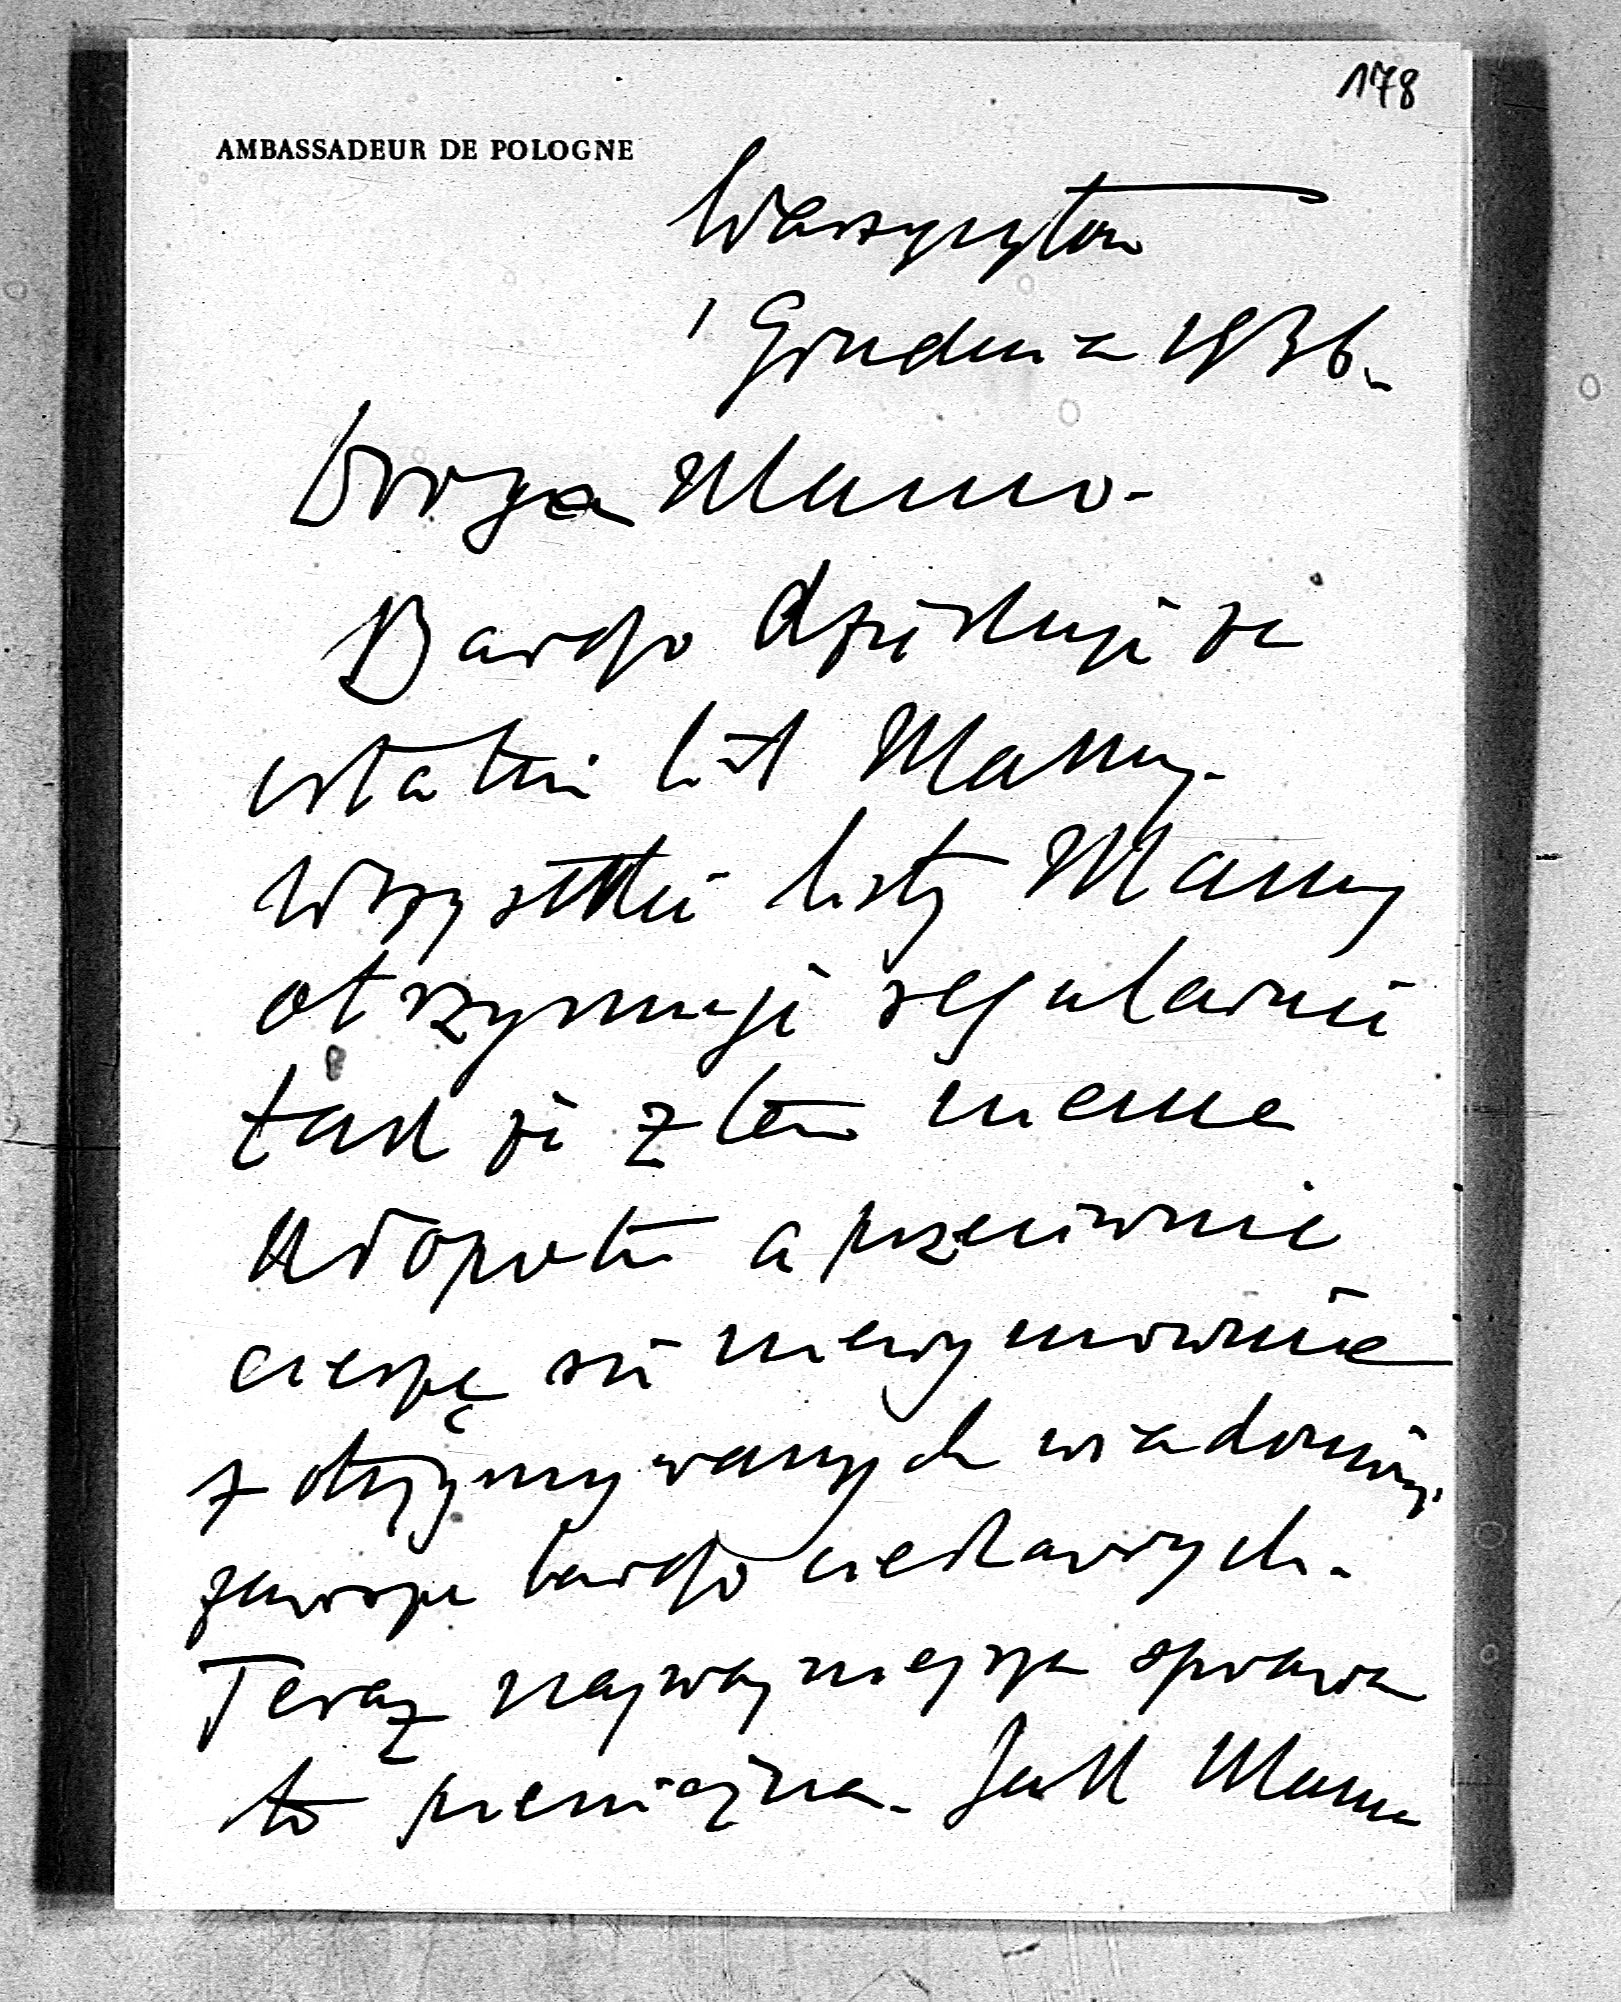 178
AMBASSADEUR DE POLOGNE
Waszyngton
1 Grudnia 1936.
Droga Mamo-
Bardzo dziękuję za
ostatni list Mamy.
Wszystkie listy Mamy
otrzymuję regularnie
tak że z tem niema
kłopotu a przeciwnie
cieszę się niewymownie
z otrzymywanych wiadomości,
zawsze bardzo ciekawych.
Teraz najważniejsza sprawa
to pieniężna. Jak Mama